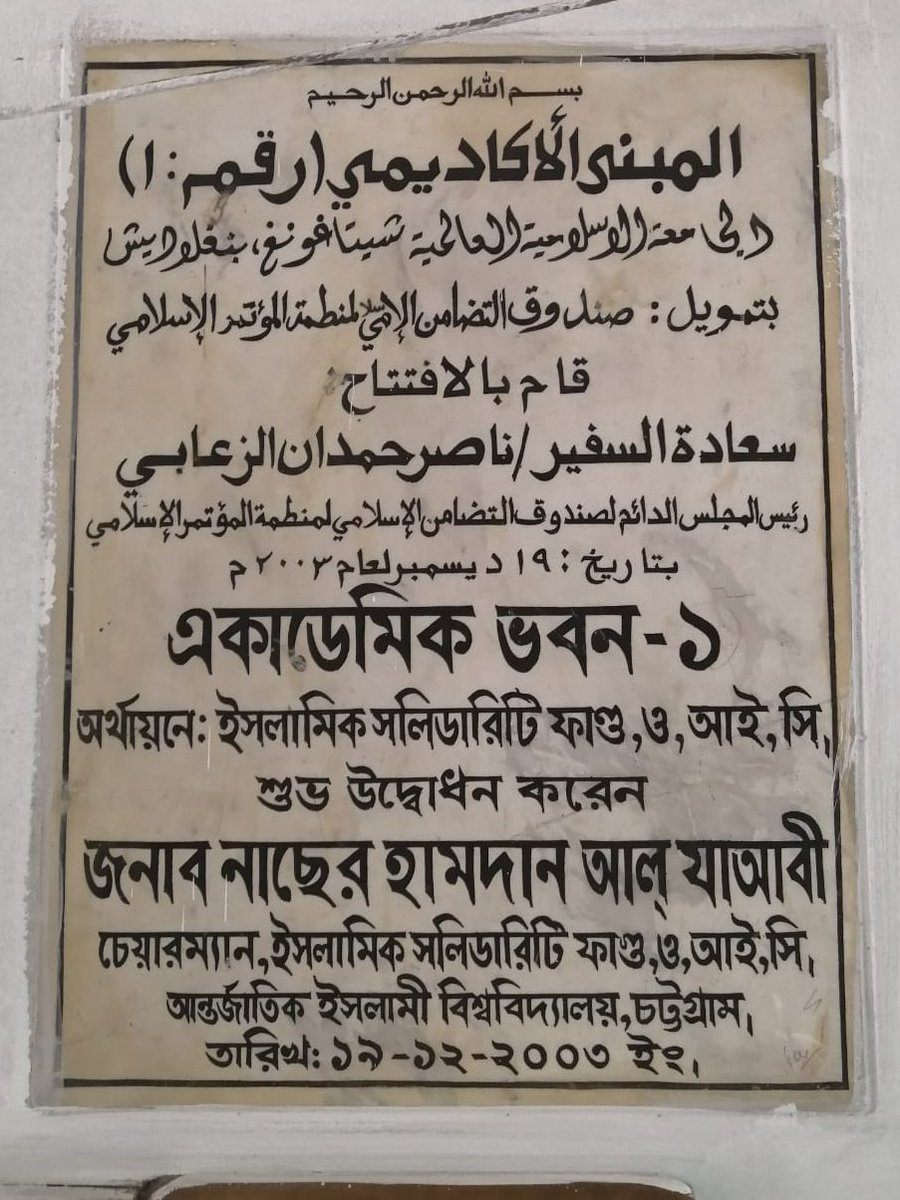 بسم الله الرحمن الرحيم
المبنى الأكاديمي (رقم: ١)
الجامعة الاسلامية العالمية شيتاغونغ، بنغلاديش
بتمويل: صندوق التضامن الإسلامي لمنظمة المؤتمر الإسلامي
قام بالافتتاح:
سعادة السفير/ناصر حمدان الزعابي
رئيس المجلس الدائم لصندوق التضامن الإسلامي لمنظمة المؤتمر الإسلامي
بتاريخ: ١٩ ديسمبر لعام ٢٠٠٣ م
একাডেমিক ভবন-১
অর্থায়নে: ইসলামিক সলিডারিটি ফাণ্ড,ও,আই,সি,
শুভ উদ্বোধন করেন
জনাব নাছের হামদান আল্ যাআবী
চেয়ারম্যান,ইসলামিক সলিডারিটি ফাণ্ড,ও,আই,সি,
আন্তর্জাতিক ইসলামী বিশ্ববিদ্যালয়,চট্টগ্রাম,
তারিখ: ১৯-১২-২০০৩ ইং,